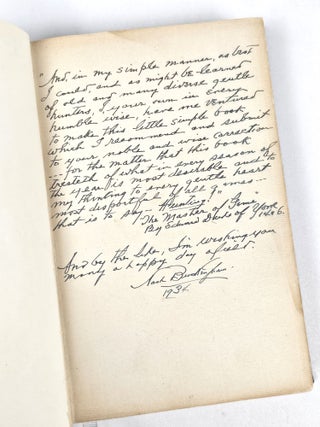 "And, in my simple manner, as best
I could, and as might be learned
of old and many diverse gentle
hunters, I your own in every
humble wise, have me ventured
to make this little simple book
which I recommend and submit
to your noble and wise correction
... For the matter that this book
treateth of what in every season of
the year is most desirable and to
my thinking to every gentle heart
most disportful of all games...
that is to say - Hunting."
"The Master of Game"
By Edward Duke of York
1406.
And by the                , I'm wishing you
many a happy day afield.
Nash Buckingham
1936